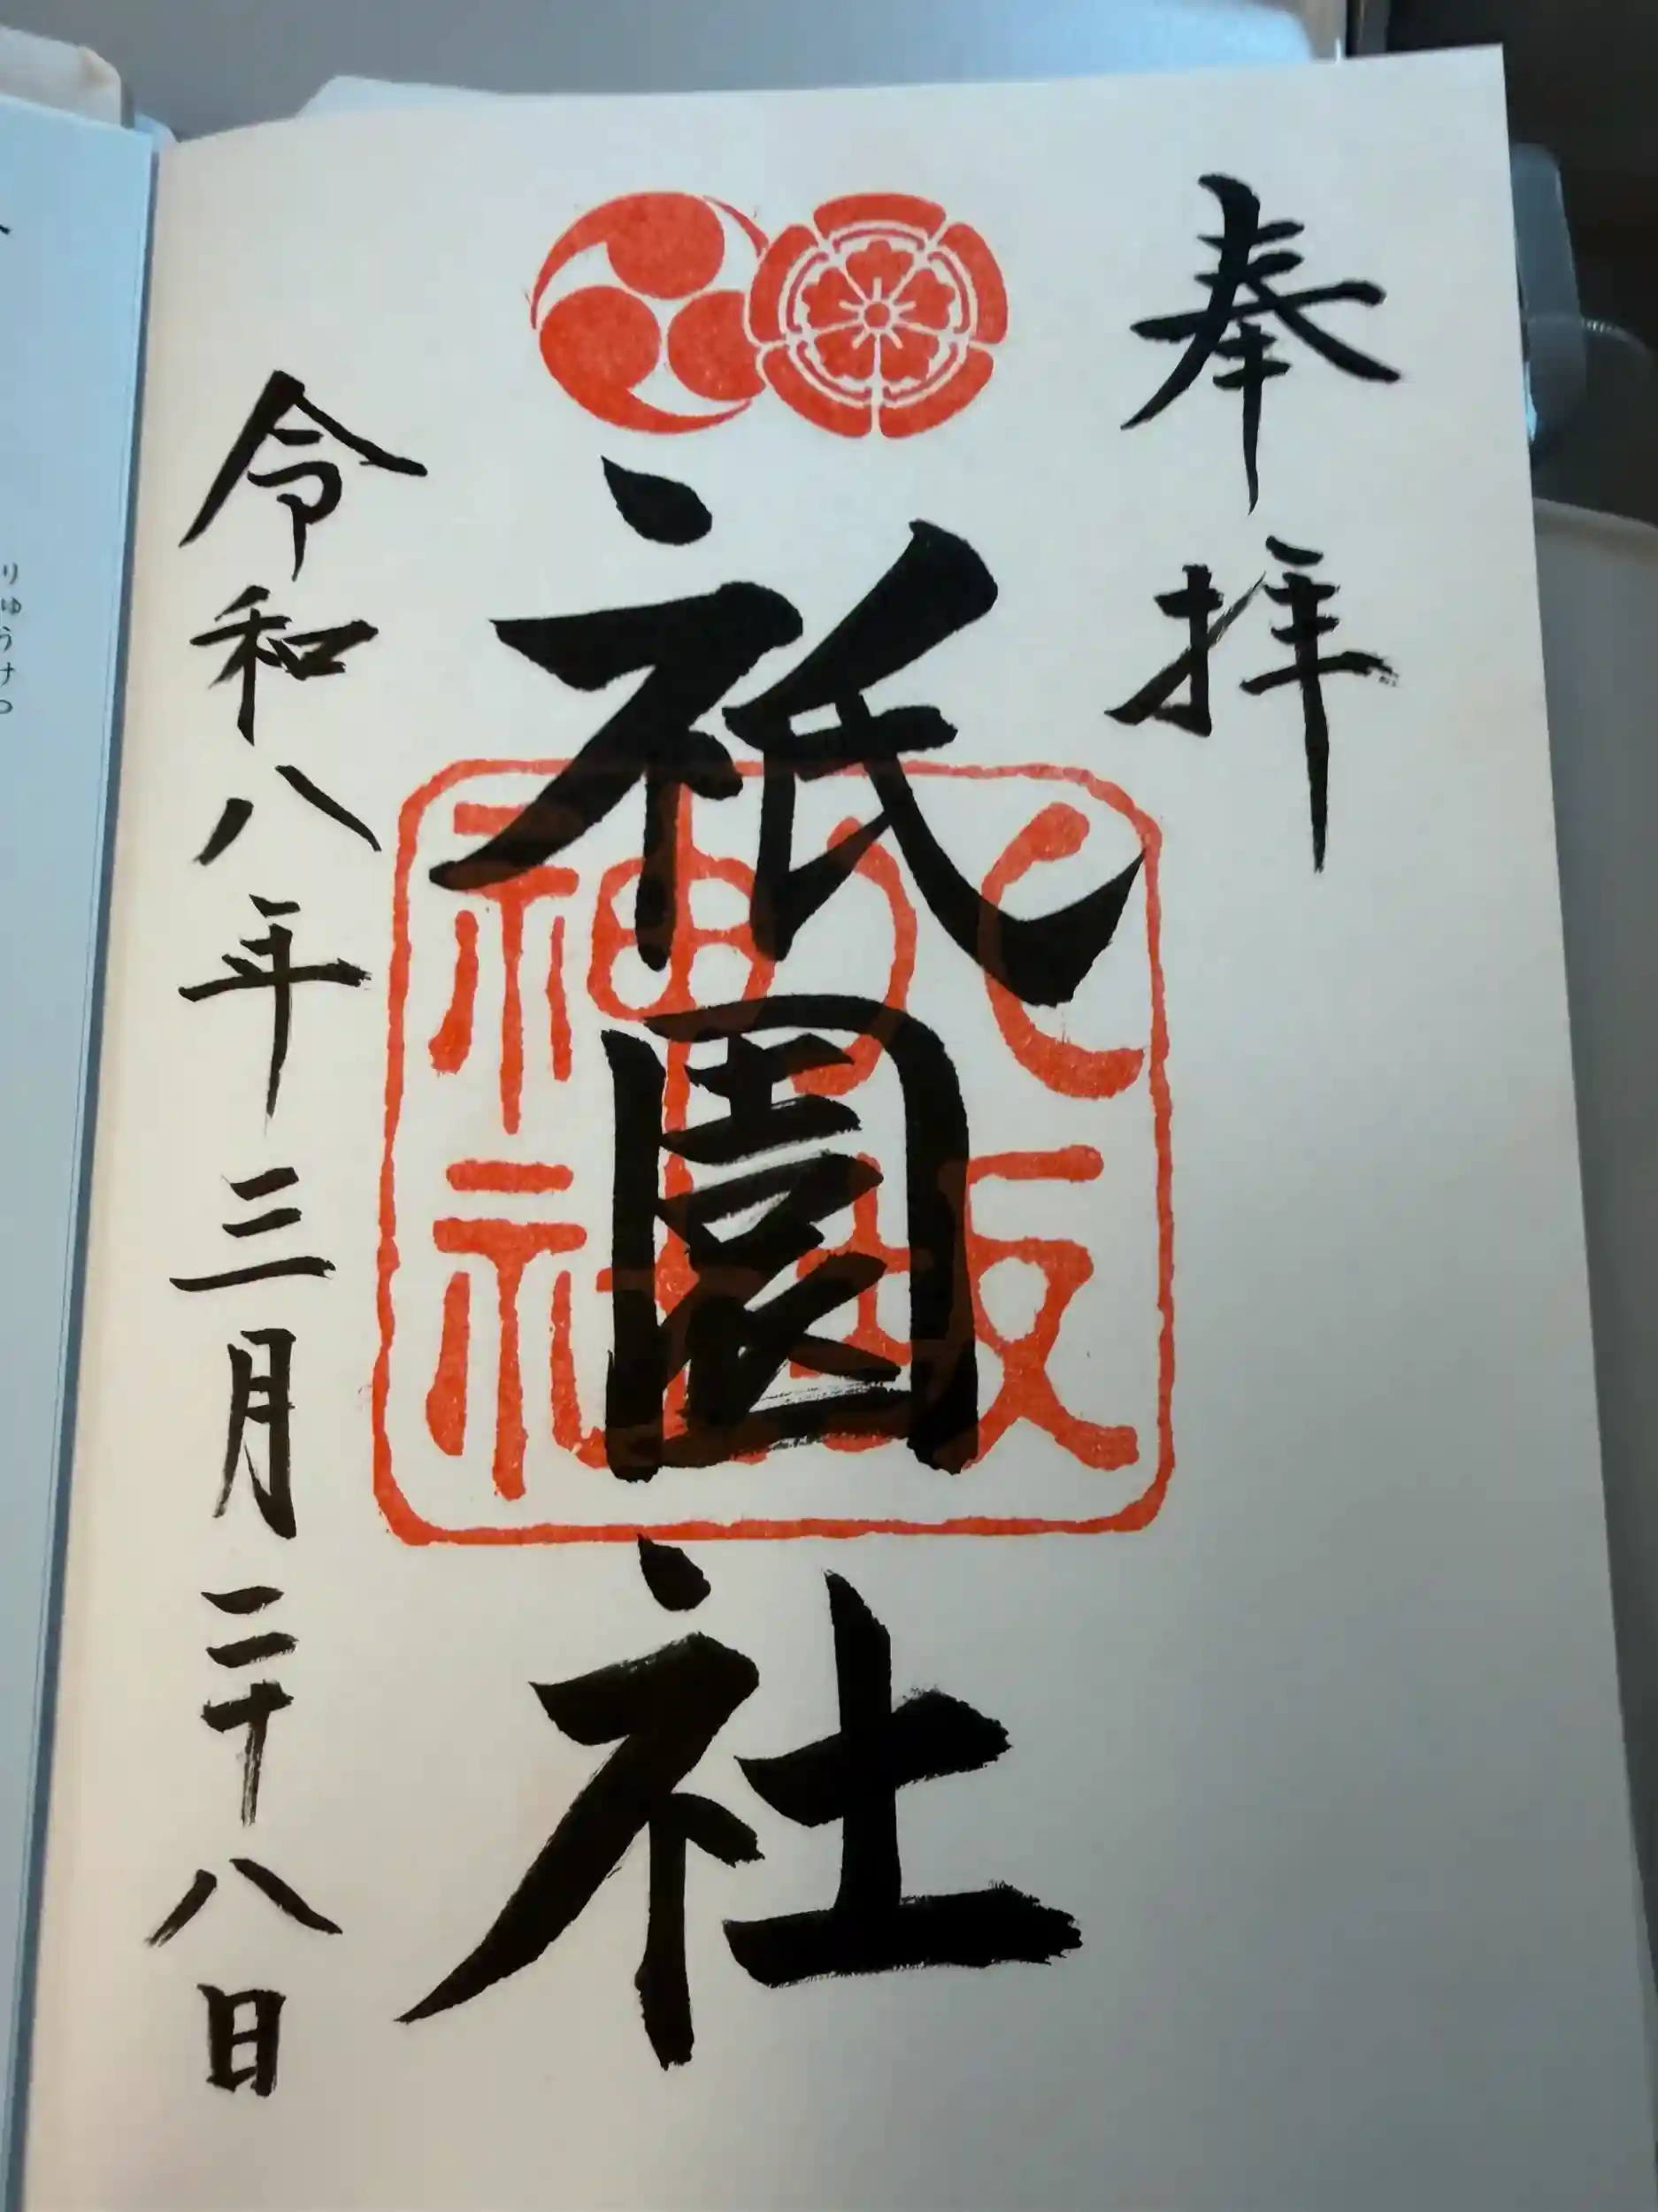 奉拝
祇園社
八坂神社
令和八年三月二十八日
りゅうけつ